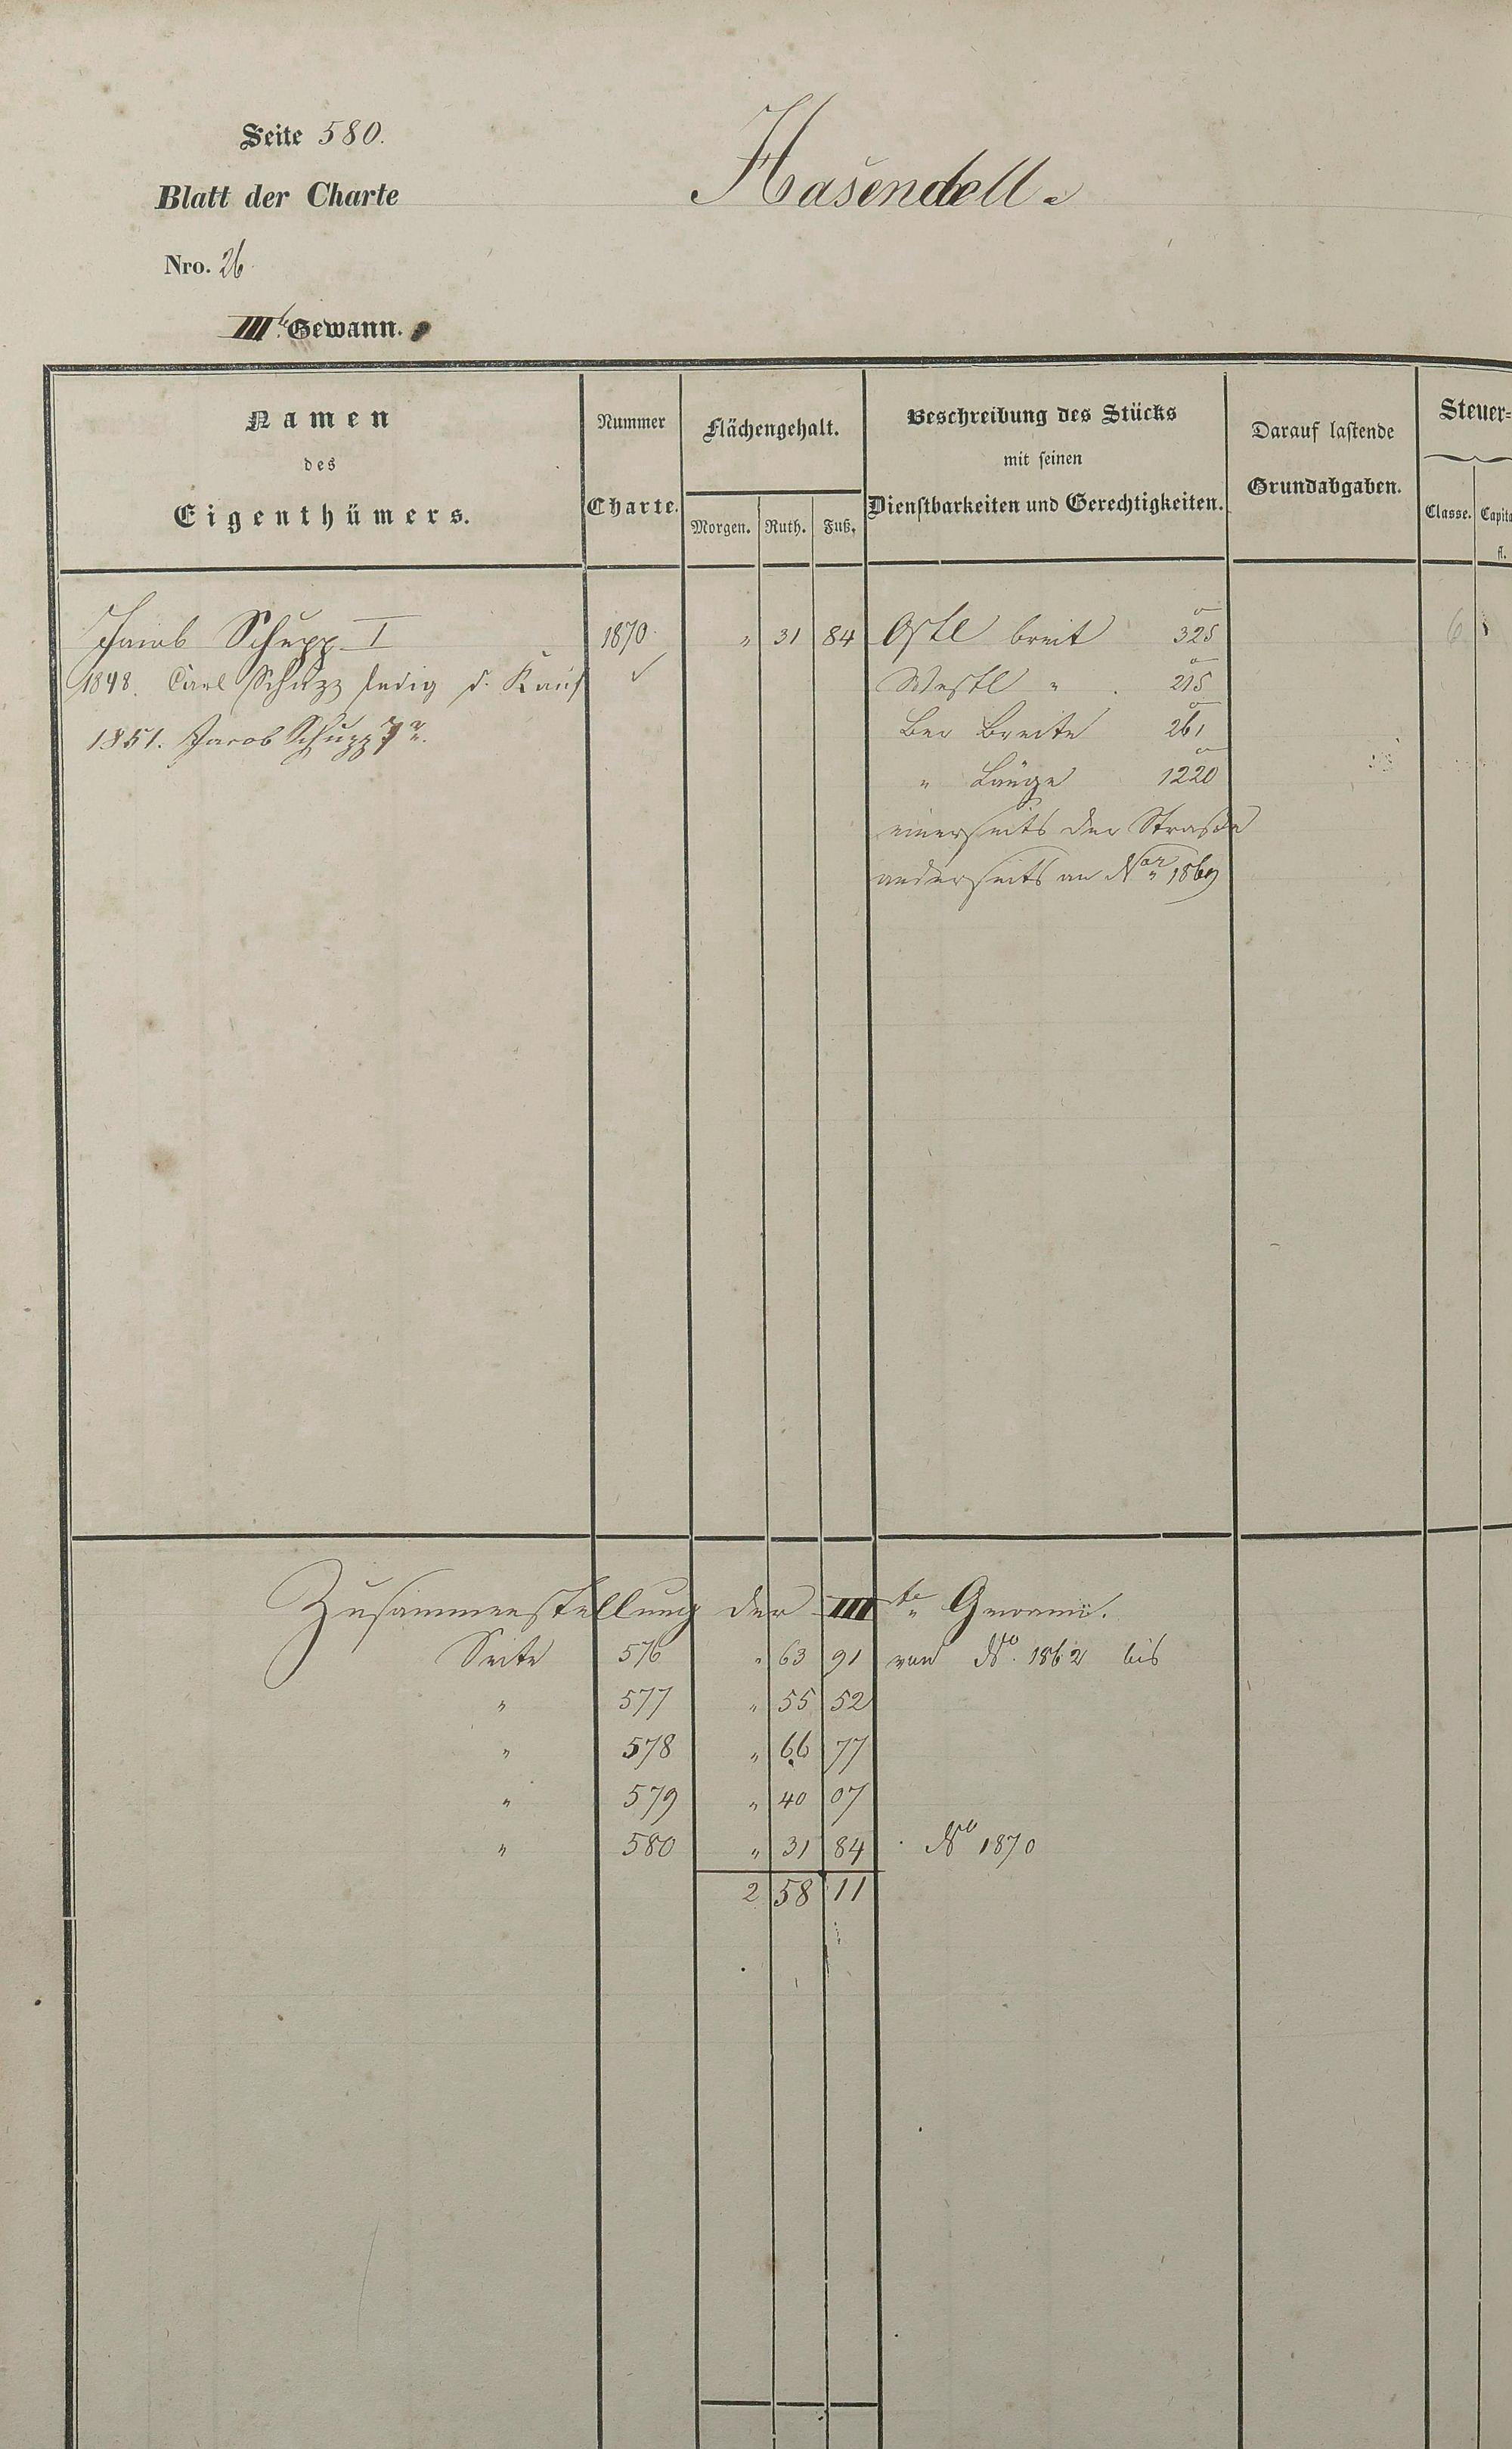 Seite 580.
Hasendell.
Blatt der Charte
Nro. 26
III.te Gewann.
Namen
des
Eigenthümers.
Nummer
Charte.
Flächengehalt.
Morgen. Ruth. Fuß.
Beschreibung des Stücks
mit seinen
Dienstbarkeiten und Gerechtigkeiten.
Darauf lastende
Grundabgaben.
Steuer=
Classe. Capita
fl.
Jacob Schupp I 1870 " 31 84 Ostl breit 325 6
1848. Carl Schupp ledig d. Kauf ✓ Westl " . 215
1851. Jacob Schupp Ber Breite 261
" Länge 1220
einerseits der Straße
anderseits an Nor 1869
Zusammenstellung der III te Gewann.
Seite 576 " 63 91 von No. 1862 bis
" 577 " 55 52
" 578 " 66 77
" 579 " 40 07
" 580 " 31 84 No 1870
2 58 11